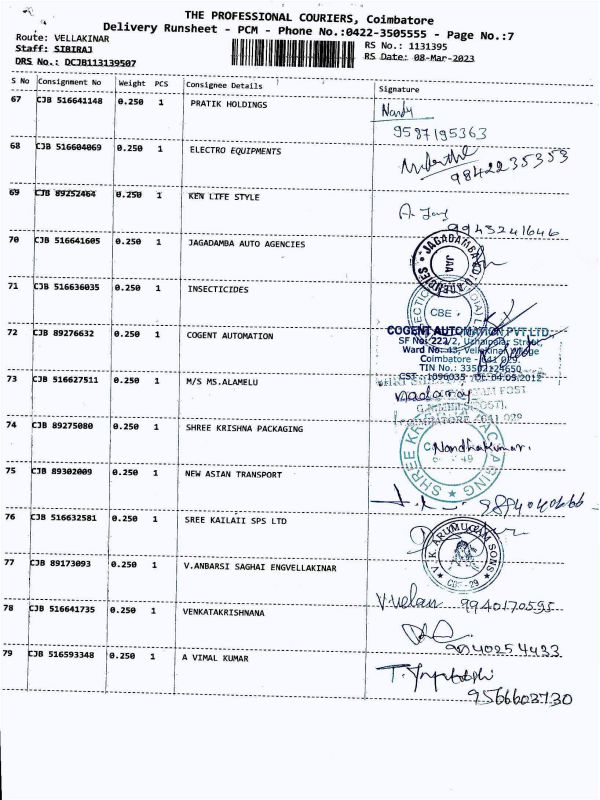 THE PROFESSIONAL COURIERS, Coimbatore
Delivery Runsheet - PCM - Phone No.:0422-3505555 - Page No.:7
Route: VELLAKINAR
RS No.: 1131395
Staff: SIBIRAJ
RS Date: 08-Mar-2023
DRS No.: DCJB113139507
S No Consignment No Weight PCS Consignee Details Signature
67 CJB 516641148 0.250 1 PRATIK HOLDINGS Nandy
9587195363
68 CJB 516604069 0.250 1 ELECTRO EQUIPMENTS
9842235353
69 CJB 89252464 0.250 1 KEN LIFE STYLE A. Jay
9943241646
70 CJB 516641605 0.250 1 JAGADAMBA AUTO AGENCIES
JAGADAMBA AUTO AGENCIES
JAA
71 CJB 516636035 0.250 1 INSECTICIDES
CBE
72 CJB 89276632 0.250 1 COGENT AUTOMATION
COGENT AUTOMATION PVT.LTD.
SF No: 222/2, Street,
Ward No: 43, Vellakinar Village
Coimbatore - 641 029.
TIN No.: 33502124650
CST : 1096035 Dt: 04.05.2012
73 CJB 516627511 0.250 1 M/S MS.ALAMELU
POST
COIMBATORE - 641 029
74 CJB 89275080 0.250 1 SHREE KRISHNA PACKAGING
SHREE KRISHNA PACKAGING
Nandhakumar.
75 CJB 89302009 0.250 1 NEW ASIAN TRANSPORT
76 CJB 516632581 0.250 1 SREE KAILAII SPS LTD
V.K. ARUMUGAM SONS
CBE - 29
77 CJB 89173093 0.250 1 V.ANBARSI SAGHAI ENGVELLAKINAR
V.Velan 9940170595
78 CJB 516641735 0.250 1 VENKATAKRISHNANA
9040254433
79 CJB 516593348 0.250 1 A VIMAL KUMAR
9566603730